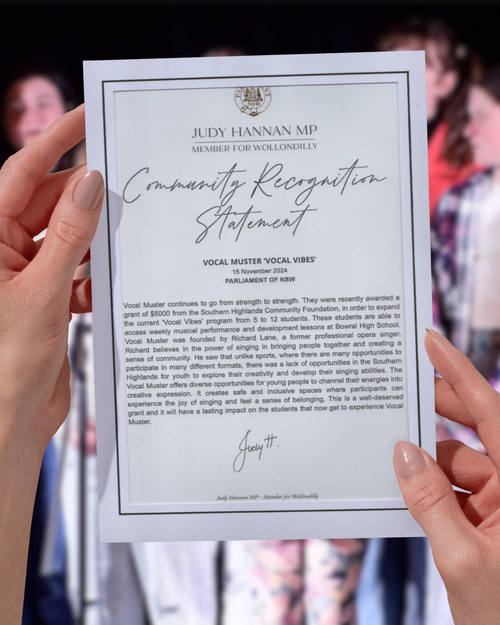 JUDY HANNAN MP
MEMBER FOR WOLLONDILLY
Community Recognition
Statement
VOCAL MUSTER 'VOCAL VIBES'
15 November 2024
PARLIAMENT OF NSW
Vocal Muster continues to go from strength to strength. They were recently awarded a
grant of $5000 from the Southern Highlands Community Foundation, in order to expand
the current 'Vocal Vibes' program from 5 to 12 students. These students are able to
access weekly musical performance and development lessons at Bowral High School.
Vocal Muster was founded by Richard Lane, a former professional opera singer.
Richard believes in the power of singing in bringing people together and creating a
sense of community. He saw that unlike sports, where there are many opportunities to
participate in many different formats, there was a lack of opportunities in the Southern
Highlands for youth to explore their creativity and develop their singing abilities. The
Vocal Muster offers diverse opportunities for young people to channel their energies into
creative expression. It creates safe and inclusive spaces where participants can
experience the joy of singing and feel a sense of belonging. This is a well-deserved
grant and it will have a lasting impact on the students that now get to experience Vocal
Muster.
Judy H.
Judy Hannan MP - Member for Wollondilly